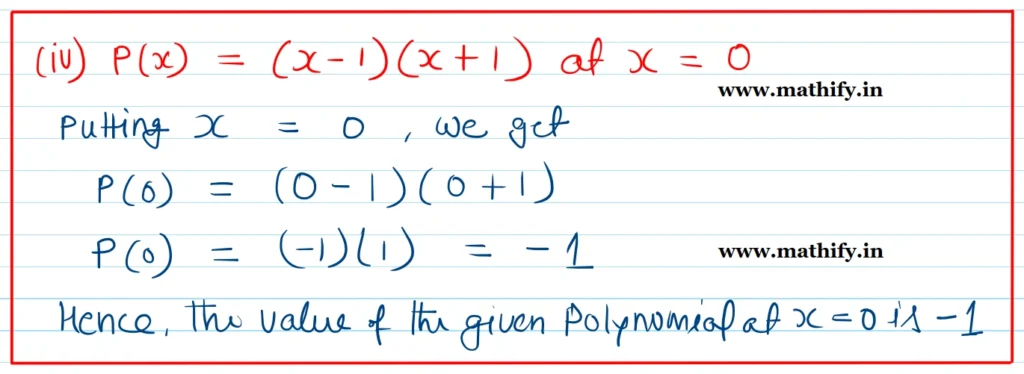 (iv) P(x) = (x-1)(x+1) at x = 0
www.mathify.in
Putting x = 0, we get
P(0) = (0-1)(0+1)
P(0) = (-1)(1) = -1
www.mathify.in
Hence, the value of the given Polynomial at x=0 is -1